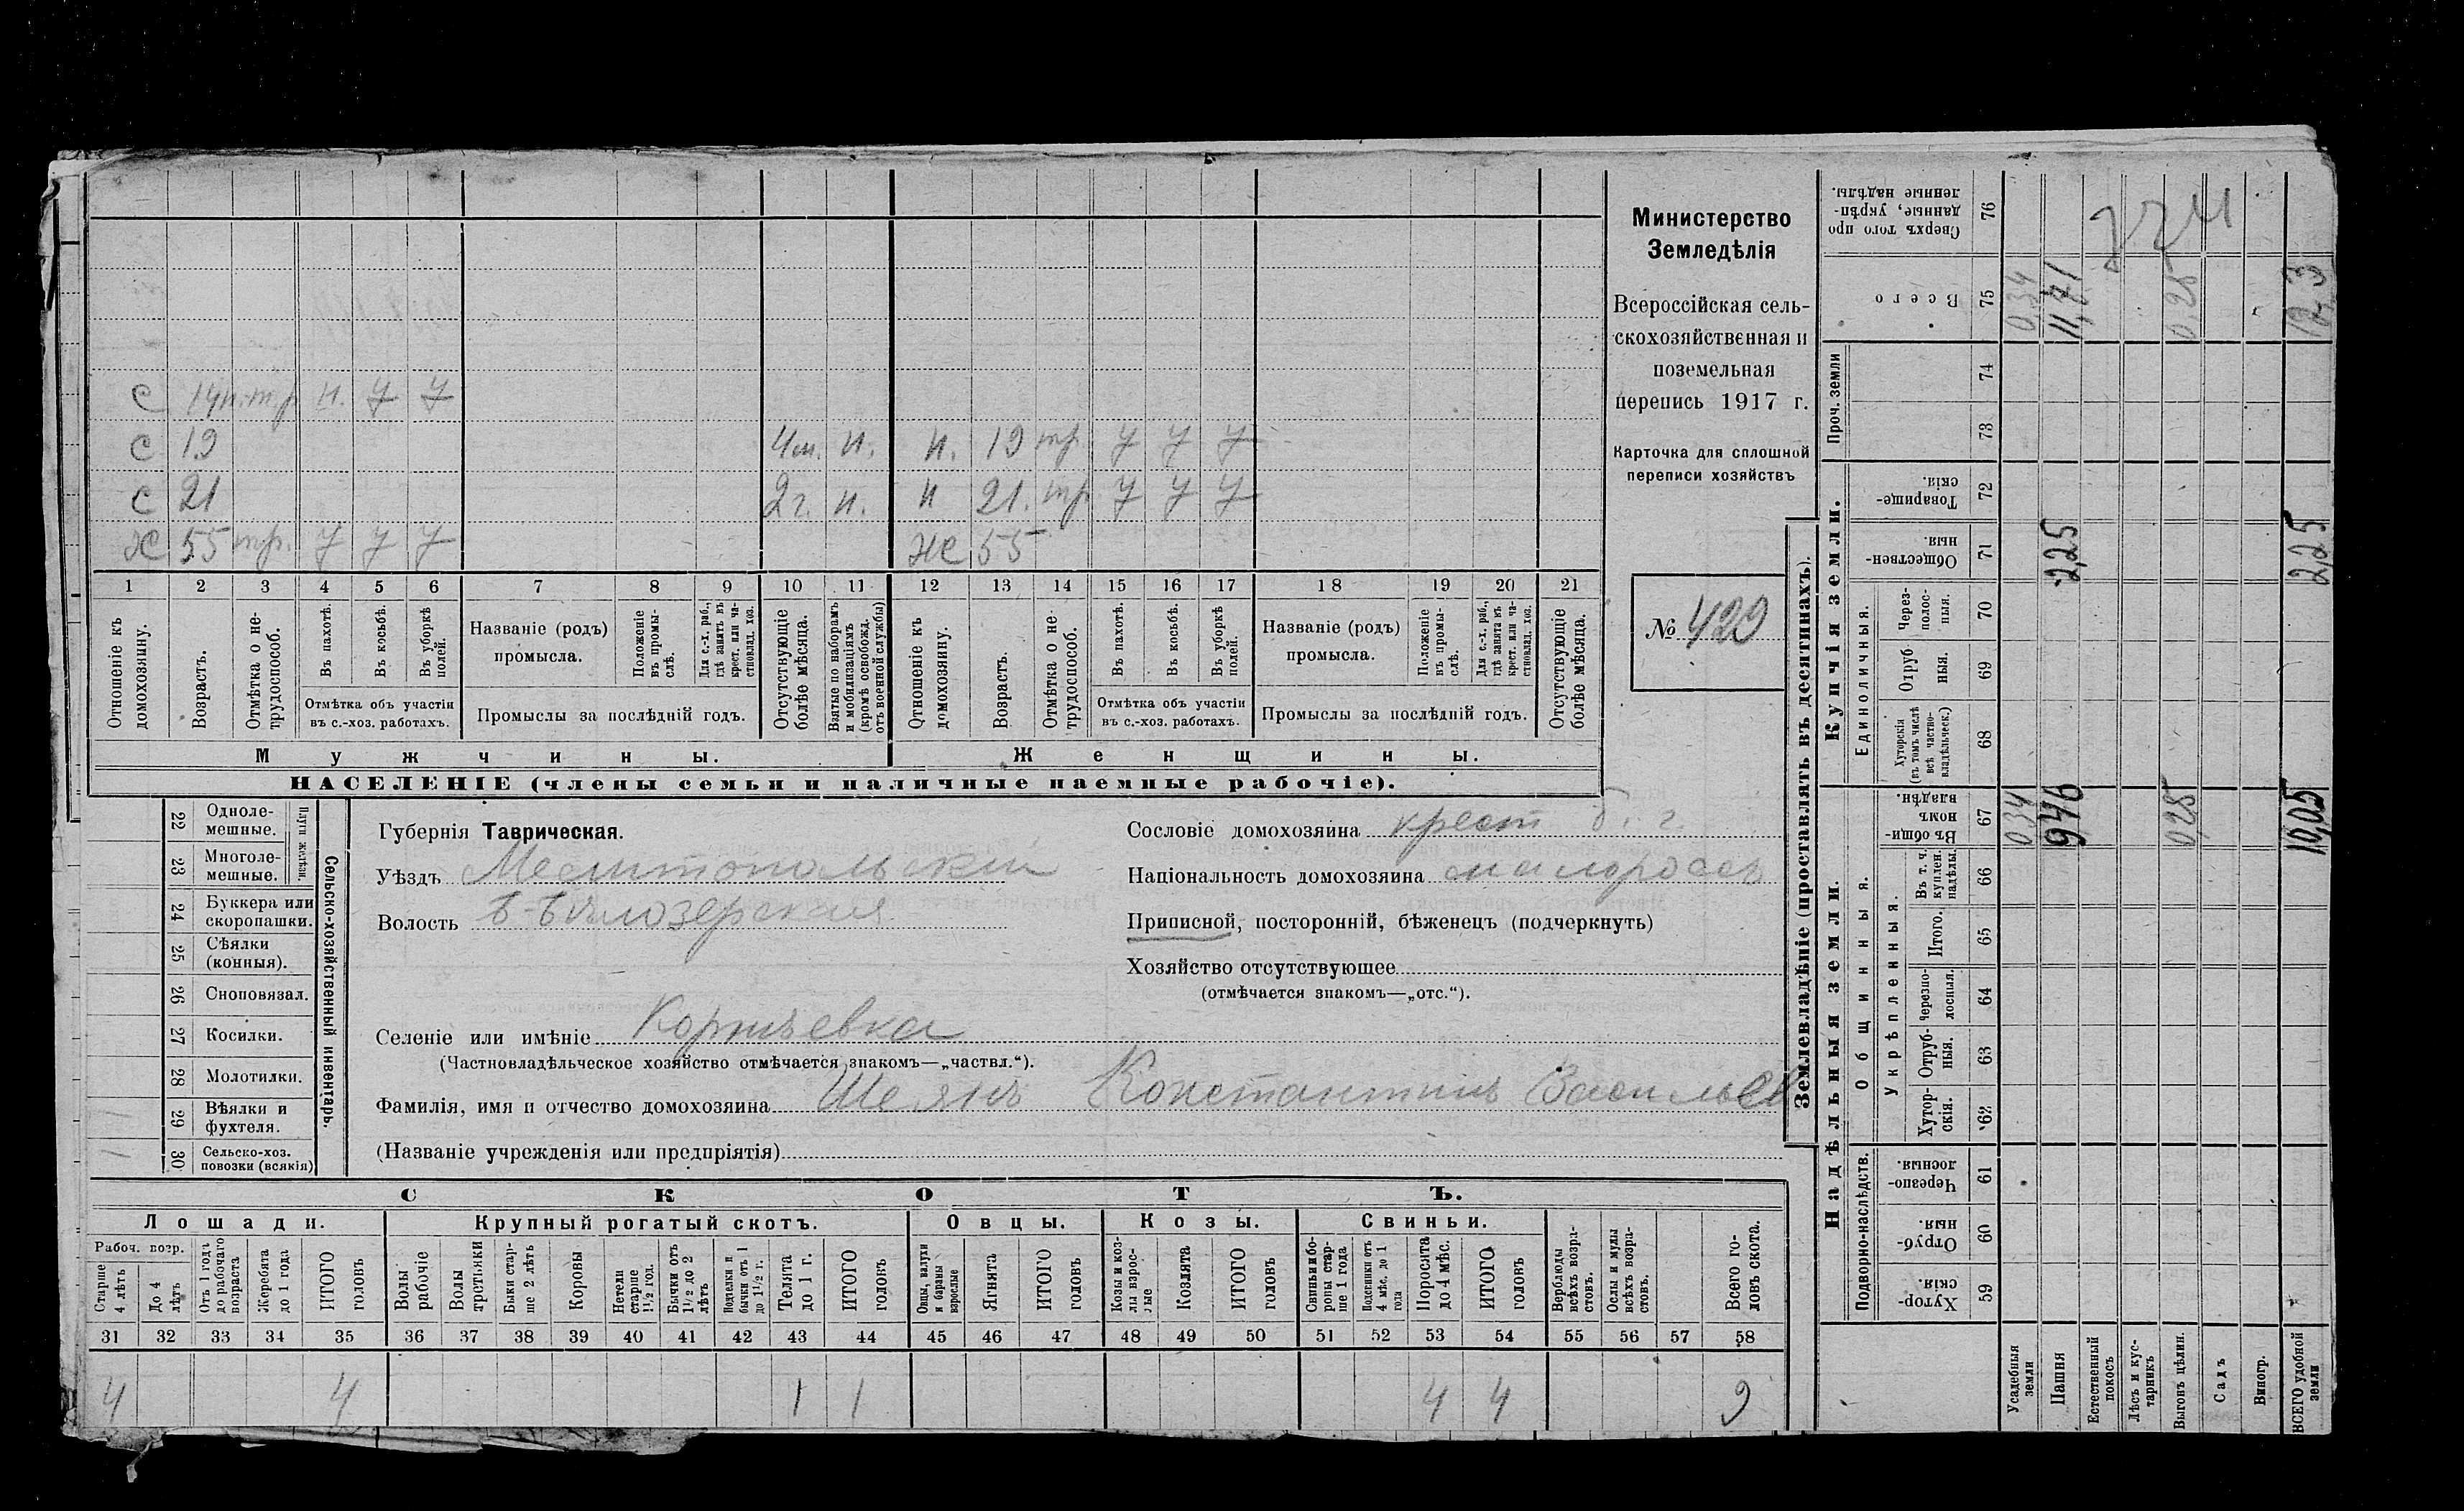 С 14 п.тр п. у у
С 19 4 м. п. п. 19 тр. у у у
С 21 2 г. п. п 21. тр у у у
Ж 55 тр. у у у же 55
1 2 3 4 5 6 7 8 9 10 11 12 13 14 15 16 17 18 19 20 21
Отношеніе къ домохозяину.
Возрастъ.
Отмѣтка о не-трудоспособ.
Въ пахотѣ.
Въ косьбѣ.
Въ уборкѣ полей.
Отмѣтка объ участіи
въ с.-хоз. работахъ.
Названіе (родъ)
промысла.
Положеніе въ промы-слѣ.
Для с.-х. раб., гдѣ занятъ въ крест. или ча-стновлад. хоз.
Промыслы за послѣдній годъ.
Отсутствующіе болѣе мѣсяца.
Взятые по наборамъ и мобилизаціямъ (кромѣ освобожд. отъ военной службы)
Отношеніе къ домохозяину.
Возрастъ.
Отмѣтка о не трудоспособ.
Въ пахотѣ.
Въ косьбѣ.
Въ уборкѣ полей.
Отмѣтка объ участіи
въ с.-хоз. работахъ.
Названіе (родъ)
промысла.
Положеніе въ промы-слѣ.
Для с.-х. раб., гдѣ занята въ крест. или ча-стновлад. хоз.
Промыслы за послѣдній годъ.
Отсутствующіе болѣе мѣсяца.
Мужчины.
Женщины.
НАСЕЛЕНІЕ (члены семьи и наличные наемные рабочіе).
Министерство
Земледѣлія
Всероссійская сель-
скохозяйственная и
поземельная
перепись 1917 г.
Карточка для сплошной
переписи хозяйствъ
№ 429
Сельско-хозяйственный инвентарь.
Плуги желѣзн.
22 Одноле-мешные.
23 Многоле-мешные.
24 Буккера или скоропашки.
25 Сѣялки (конныя).
26 Сноповязал.
27 Косилки.
28 Молотилки.
29 Вѣялки и фухтеля. 1
30 Сельско-хоз. повозки (всякія) 1
Губернія Таврическая.
Уѣздъ Мелитопольскій
Волость Б-Бѣлозерская
Селеніе или имѣніе
(Частновладѣльческое хозяйство отмѣчается знакомъ—„частвл.“).
Фамилія, имя и отчество домохозяина Шеянъ Константинъ Васильев
(Названіе учрежденія или предпріятія)
Сословіе домохозяина крест б. г.
Національность домохозяина малороссъ
Приписной, посторонній, бѣженецъ (подчеркнуть)
Хозяйство отсутствующее
(отмѣчается знакомъ—„отс.“).
СКОТЪ.
Лошади.
Крупный рогатый скотъ.
Овцы.
Козы.
Свиньи.
Рабоч. возр.
Старше 4 лѣтъ
До 4 лѣтъ
Отъ 1 годъ до рабочаго возраста
Жеребята до 1 года
ИТОГО головъ
Волы рабочіе
Волы третьяки
Быки стар-ше 2 лѣтъ
Коровы
Нетели старше 1½ год.
Бычки отъ 1½ до 2 лѣтъ
Подтелки и бычки отъ 1 до 1½ г.
Телята до 1 г.
ИТОГО головъ
Овцы, валухи и бараны взрослые
Ягнята
ИТОГО головъ
Козы и коз-лы взрос-лые
Козлята
ИТОГО головъ
Свиньи и бо-ровы стар-ше 1 года
Подсвинки отъ 4 мѣс. до 1 года
Поросята до 4 мѣс.
ИТОГО головъ
Верблюды всѣхъ возра-стовъ.
Ослы и мулы всѣхъ возра-стовъ.
Всего го-ловъ скота.
31 32 33 34 35 36 37 38 39 40 41 42 43 44 45 46 47 48 49 50 51 52 53 54 55 56 57 58
4 4 1 1 4 4 9
Землевладѣніе (проставлять въ десятинахъ).
Надѣльныя земли.
Купчія земли.
Проч. земли
Подворно-наслѣдств.
Общинныя.
Укрѣпленныя.
Единоличныя.
Сверхъ того про данные, укрѣп-ленные надѣлы. 76
Всего 75 0,34 11,71 0,28 12,3
74
73
Товарище-скія. 72
Обществен-ныя. 71 2,25 2,25
Через-полос-ныя. 70
Отруб ныя. 69
Хуторскія (въ томъ числѣ всѣ частно-владѣльческ.) 68
Въ общи-номъ владѣн. 67 0,34 9,46 0,25 10,05
Въ т. ч. куплен. надѣлы. 66
Итого. 65
Черезпо-лосныя. 64
Отруб-ныя. 63
Хутор-скія. 62
Черезпо-лосныя. 61
Отруб-ныя. 60
Хутор-скія. 59
Усадебныя земли
Пашня
Естественный покосъ
Лѣсъ и кус-тарникъ
Выгонъ цѣлин.
Садъ
Виногр.
ВСЕГО удобной земли